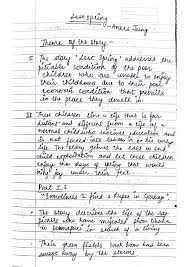 Lost Spring
Anees Jung
Theme of the Story
I The story "Lost Spring" addresses the
pitiable condition of the poor
children who are unable to enjoy
their childhood due to their poor
economic condition that prevails
in the place they dwell in.
II These children live a life that is far
distant and different from a life of a
normal child who receives education and
is not forced into labour in his early
life. The story gives the end
child exploitation and let these children
enjoy the days of spring that would
by under their feet.
Part I
"Sometimes I Find a Rupee in Garbage"
The story describes the life of the rag
pickers who have migrated from Dhaka
to Seemapuri in search of a living
Their green fields back home has been
swept away by the storms